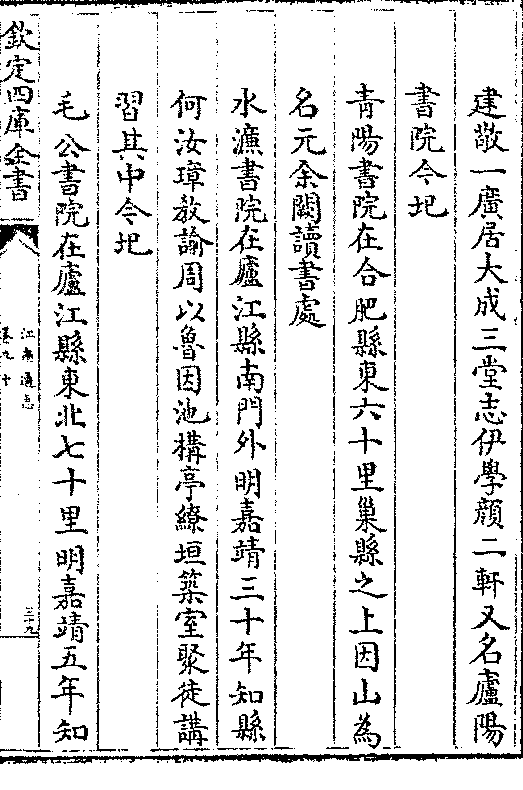 建敬一廣居大成三堂志伊學顔二軒又名廬陽
書院今圯
青陽書院在合肥縣東六十里巢縣之上因山為
名元余闕讀書處
水濂書院在廬江縣南門外明嘉靖三十年知縣
何汝璋教諭周以魯因池構亭繚垣築室聚徒講
習其中今圯
毛公書院在廬江縣東北七十里明嘉靖五年知
欽定四庫全書
江南通志
卷九十
三十九